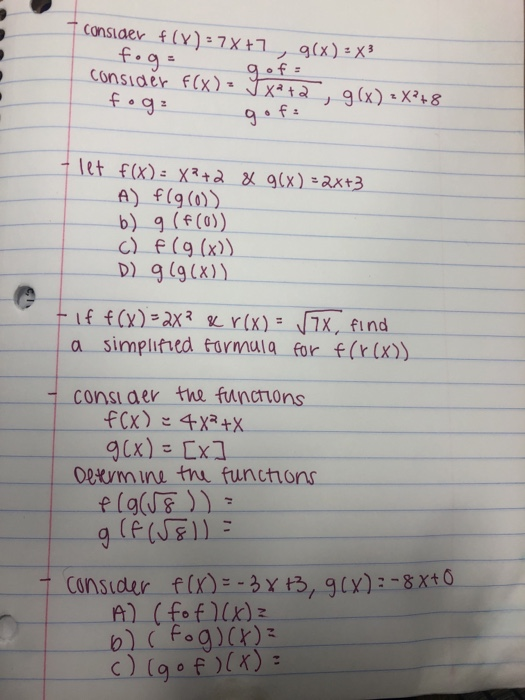 - consider f(x) = 7x+7, g(x) = x³
f∘g = g∘f =
consider f(x) = √x²+2, g(x) = x²+8
f∘g = g∘f =
- let f(x) = x²+2 & g(x) = 2x+3
A) f(g(0))
b) g(f(0))
C) f(g(x))
D) g(g(x))
- if f(x) = 2x² & r(x) = √7x, find
a simplified formula for f(r(x))
- consider the functions
f(x) = 4x²+x
g(x) = [x]
Determine the functions
f(g(√8)) =
g(f(√8)) =
- consider f(x) = -3x+3, g(x) = -8x+0
A) (f∘f)(x) =
b) (f∘g)(x) =
c) (g∘f)(x) =